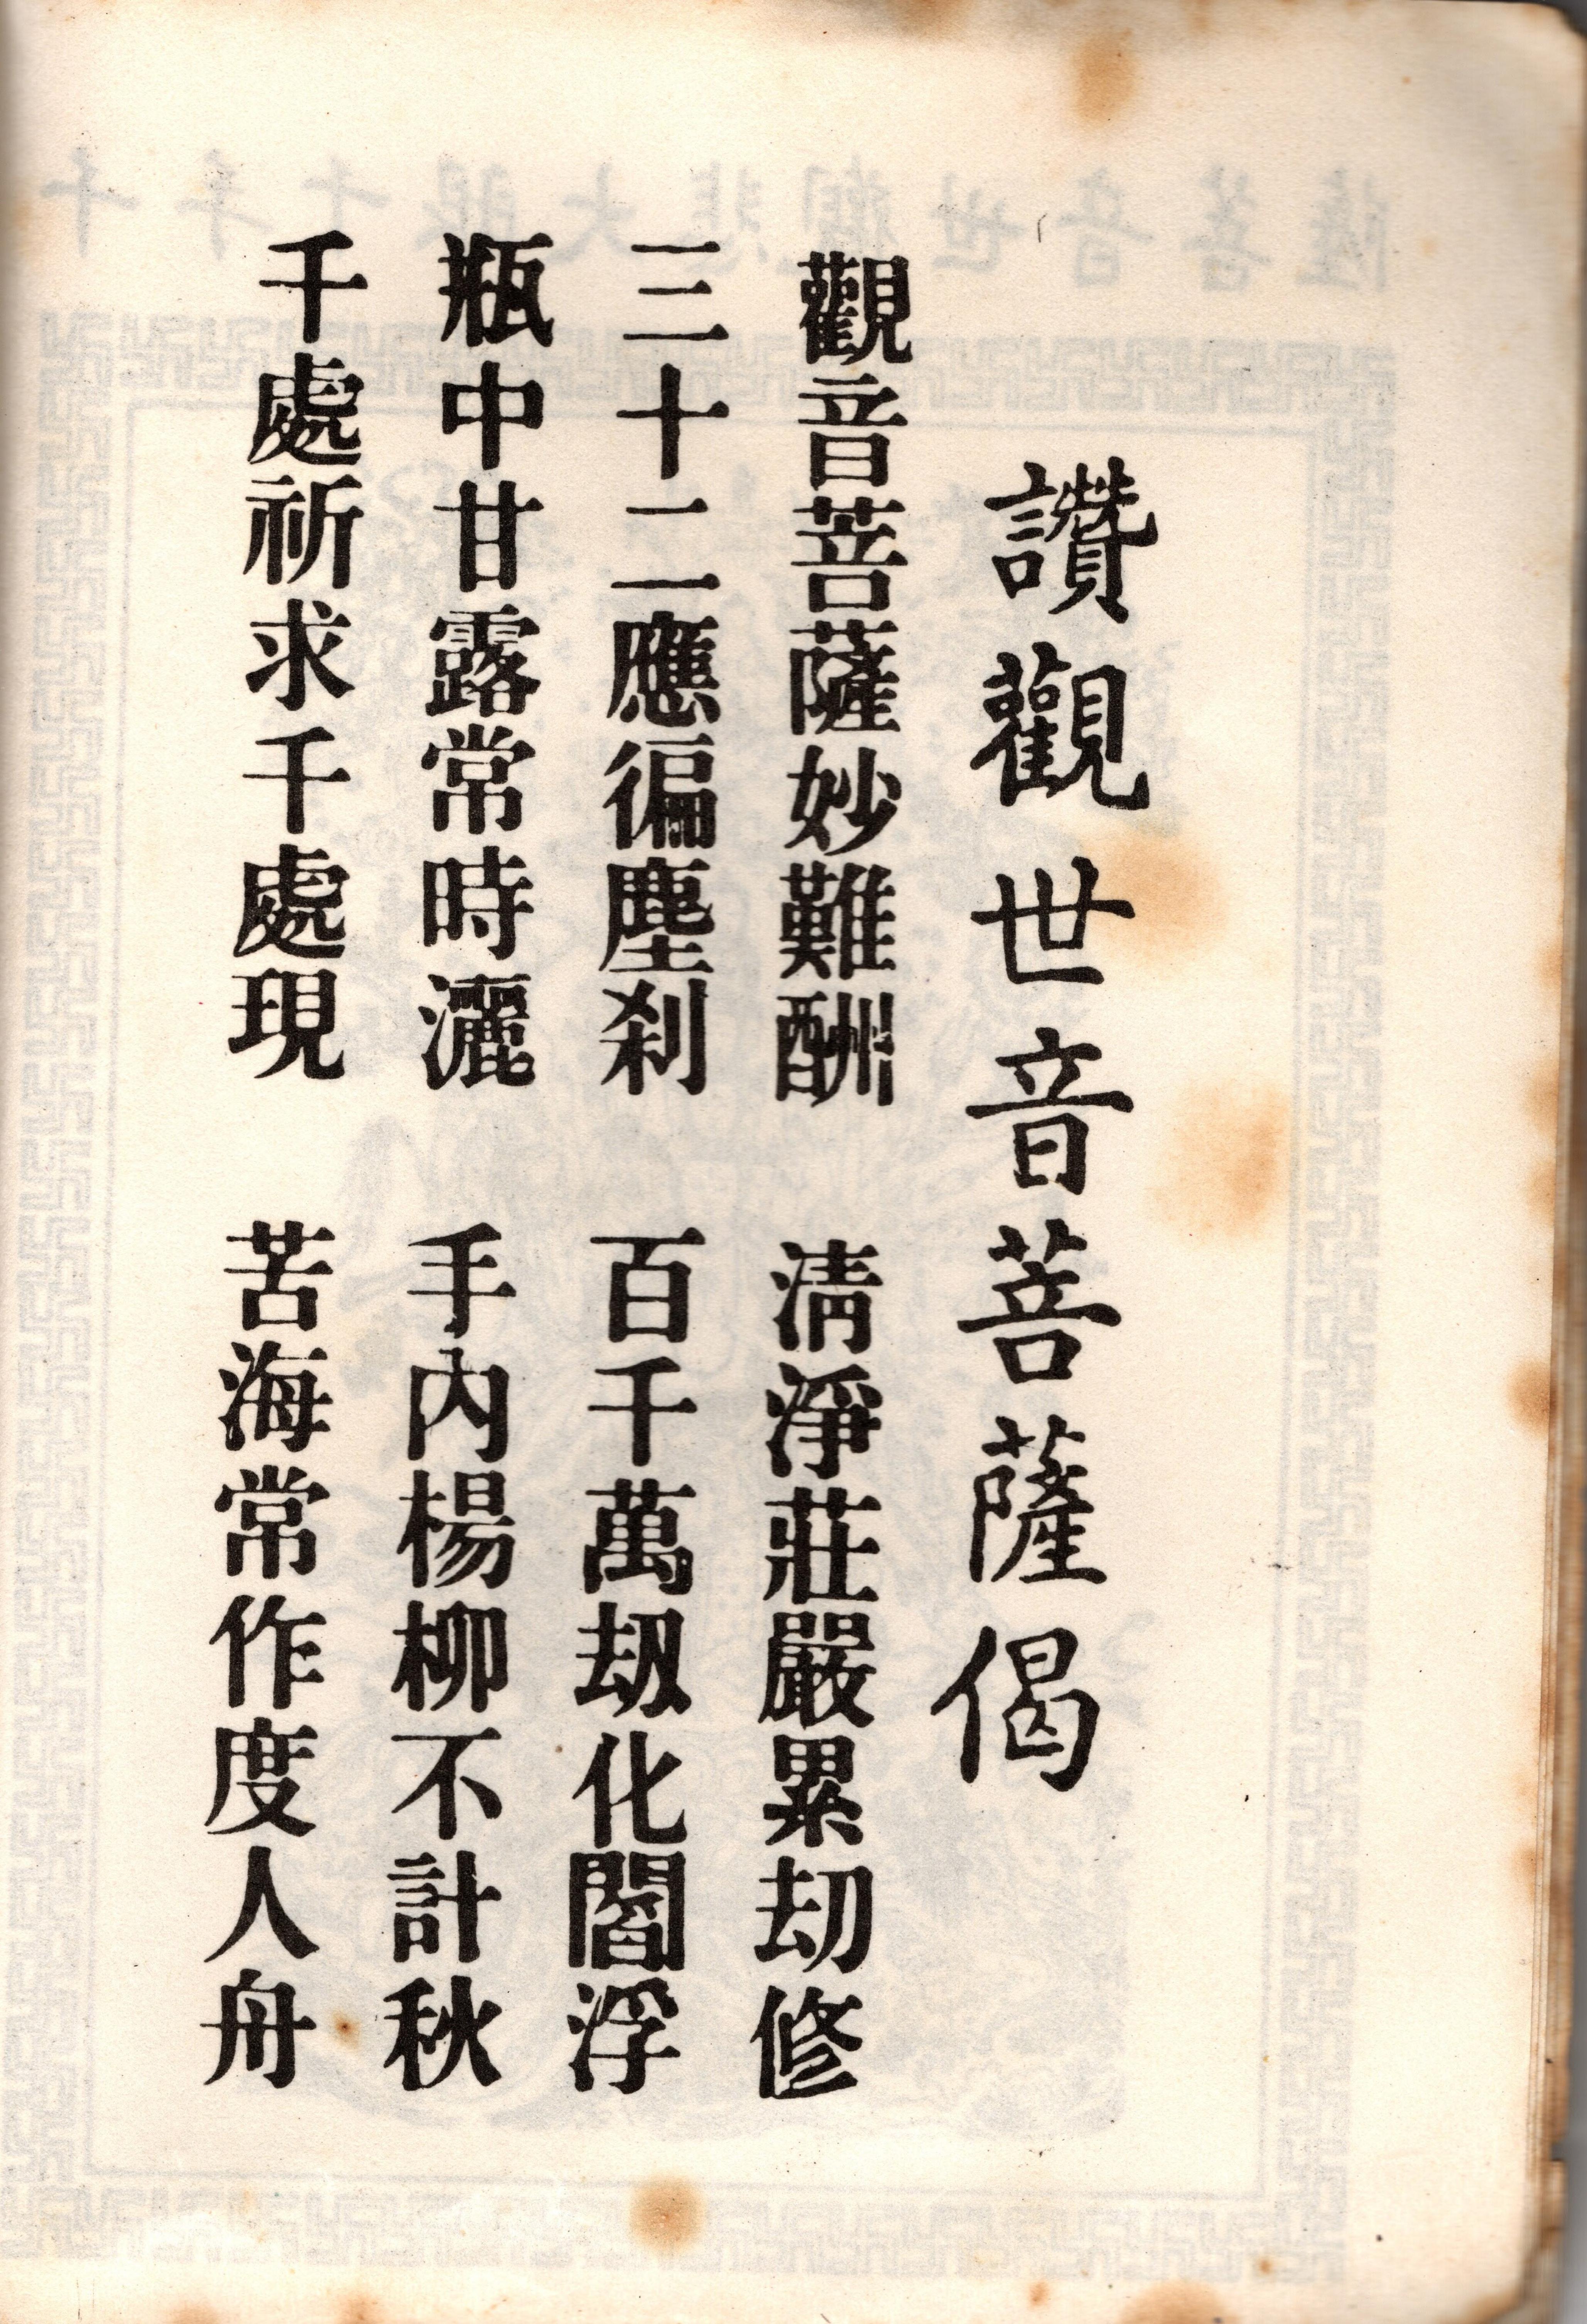 讚觀世音菩薩偈
觀音菩薩妙難酬　清淨莊嚴累劫修
三十二應徧塵刹　百千萬刼化閻浮
瓶中甘露常時灑　手內楊柳不計秋
千處祈求千處現　苦海常作度人舟